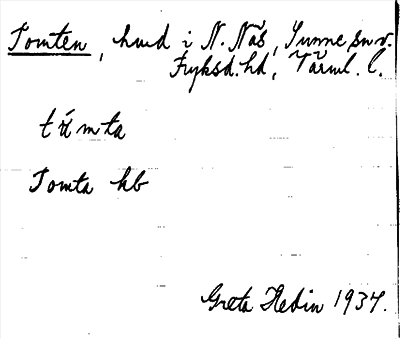 Tomten, hmd i N. Näs, Sunne sn v.
Fryksd. hd, Värml. l.
tɤ́mta
Tomta hb
Greta Hedin 1937.